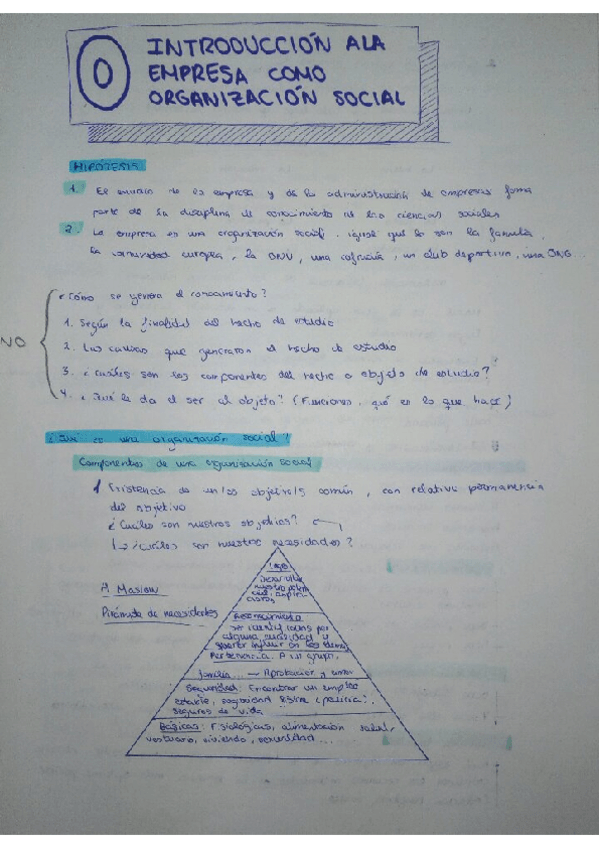 0
INTRODUCCIÓN A LA
EMPRESA COMO
ORGANIZACIÓN SOCIAL
HIPÓTESIS
1. El estudio de la empresa y de la administración de empresas forma
parte de la disciplina de conocimiento de las ciencias sociales
2. La empresa es una organización social, igual que lo son la familia,
la comunidad europea, la ONU, una cofradía, un club deportivo, una ONG...
NO
¿Cómo se genera el conocimiento?
1. Según la finalidad del hecho de estudio
2. Las causas que generaron el hecho de estudio
3. ¿cuáles son los componentes del hecho o objeto de estudio?
4. ¿Qué le da el ser al objeto? (Funciones, qué es lo que hace)
¿Qué es una organización social?
Componentes de una organización social
1 Existencia de un/os objetivo/s común, con relativa permanencia
del objetivo
¿Cuáles son nuestros objetivos?
¿cuáles son nuestras necesidades?
A Maslow
Pirámide de necesidades
Desarrollar
nuestro
Reconocimiento
ser identificados por
alguna cualidad y
poder influir en los demás
Pertenencia: A un grupo,
familia... Aprobación y amor
Seguridad: Encontrar un empleo
estable, seguridad física (policía),
seguros de vida
Básicas: Fisiológicas, alimentación, salud,
vestuario, vivienda, sexualidad...